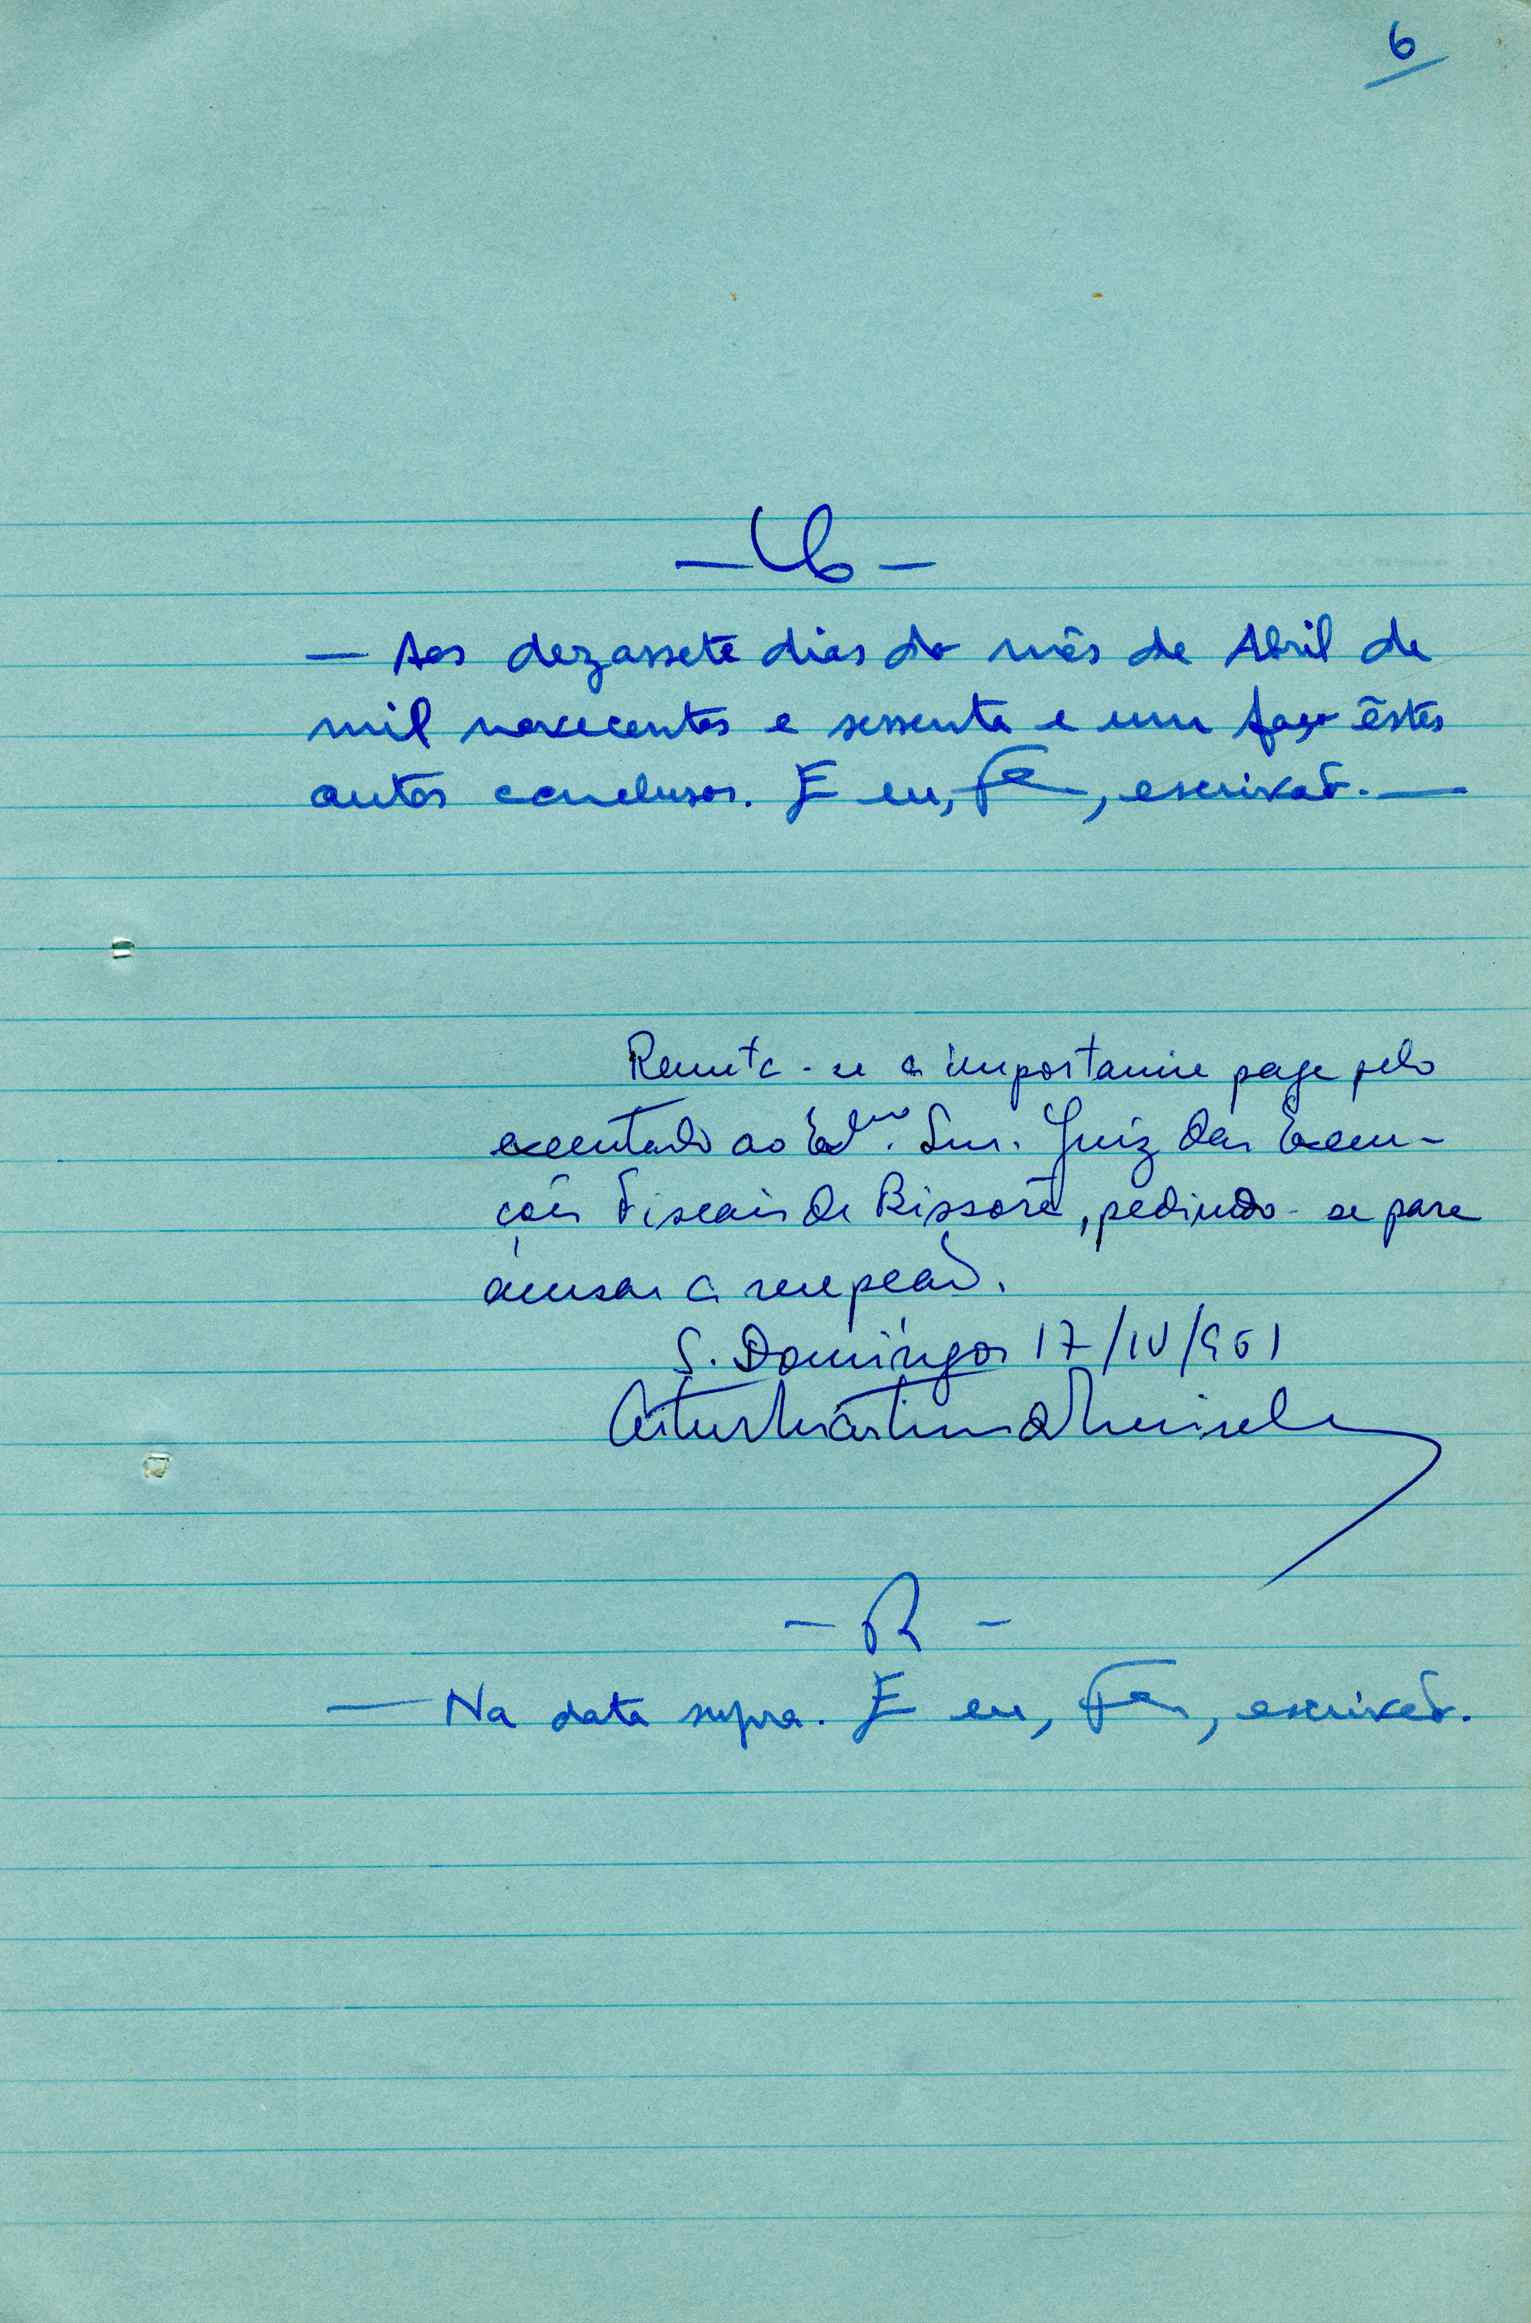 6
— Cls —
— Aos dezassete dias do mês de Abril de
mil novecentos e sessenta e um faço êstes
autos conclusos. E eu, , escrivão. —
Remeta-se a importancia paga pelo
executado ao Exmo. Snr. Juiz das Execu-
ções Fiscais de Bissorã, pedindo-se para
acusar a recepção.
S. Domingos 17/IV/961
Artur Martins
— R —
— Na data supra. E eu, , escrivão.